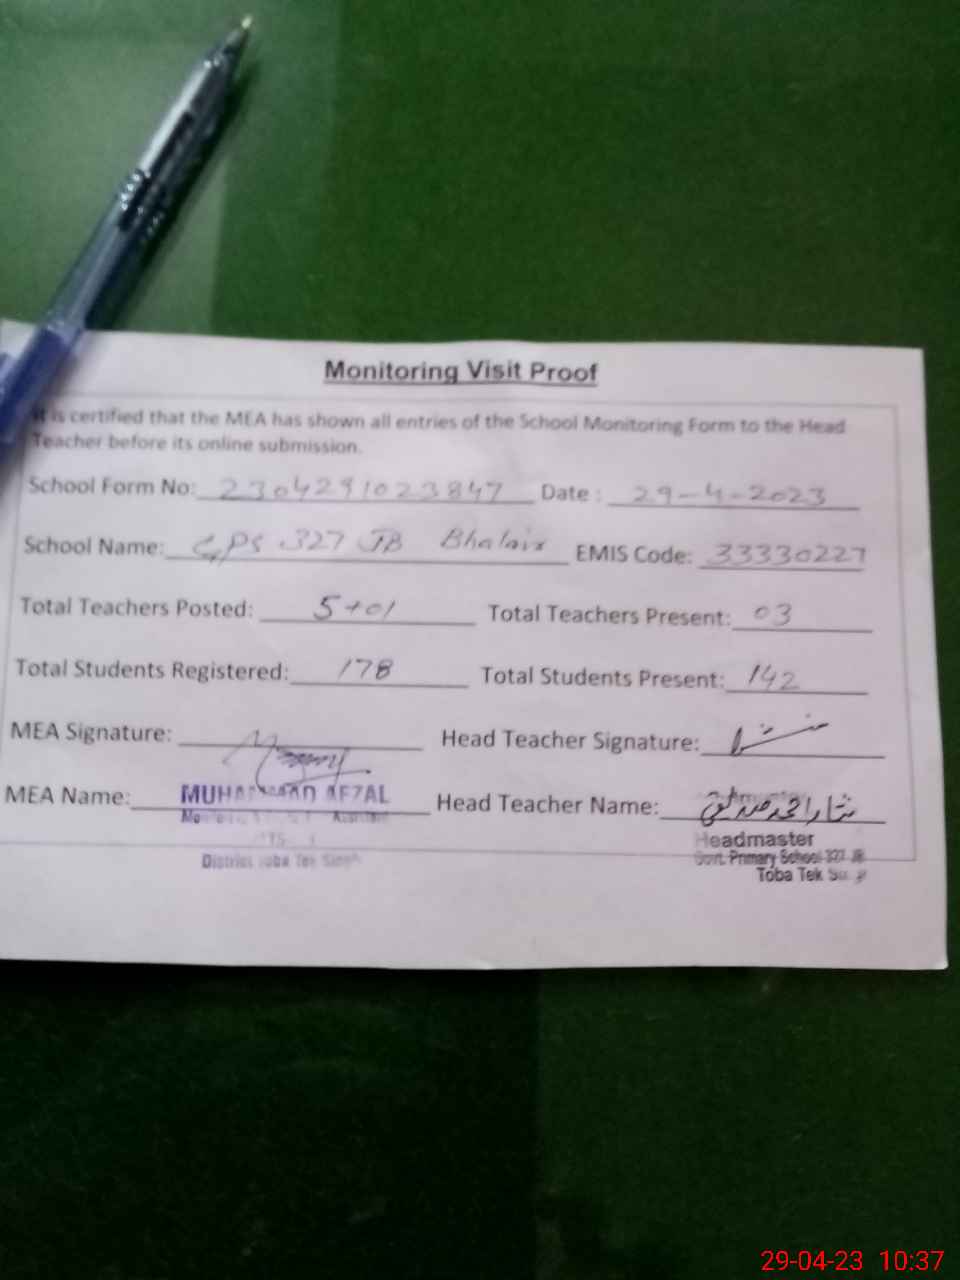 Monitoring Visit Proof
It is certified that the MEA has shown all entries of the School Monitoring Form to the Head
Teacher before its online submission.
School Form No: 2304291023847 Date : 29-4-2023
School Name: GPS 327 JB Bhalair EMIS Code: 33330227
Total Teachers Posted: 5+01 Total Teachers Present: 03
Total Students Registered: 178 Total Students Present: 142
MEA Signature: Head Teacher Signature:
MEA Name: MUHAMMAD AFZAL Head Teacher Name: نثار احمد صدیقی
Assistant
Headmaster
District Toba Tek Singh Govt. Primary School 327 JB
Toba Tek
29-04-23 10:37